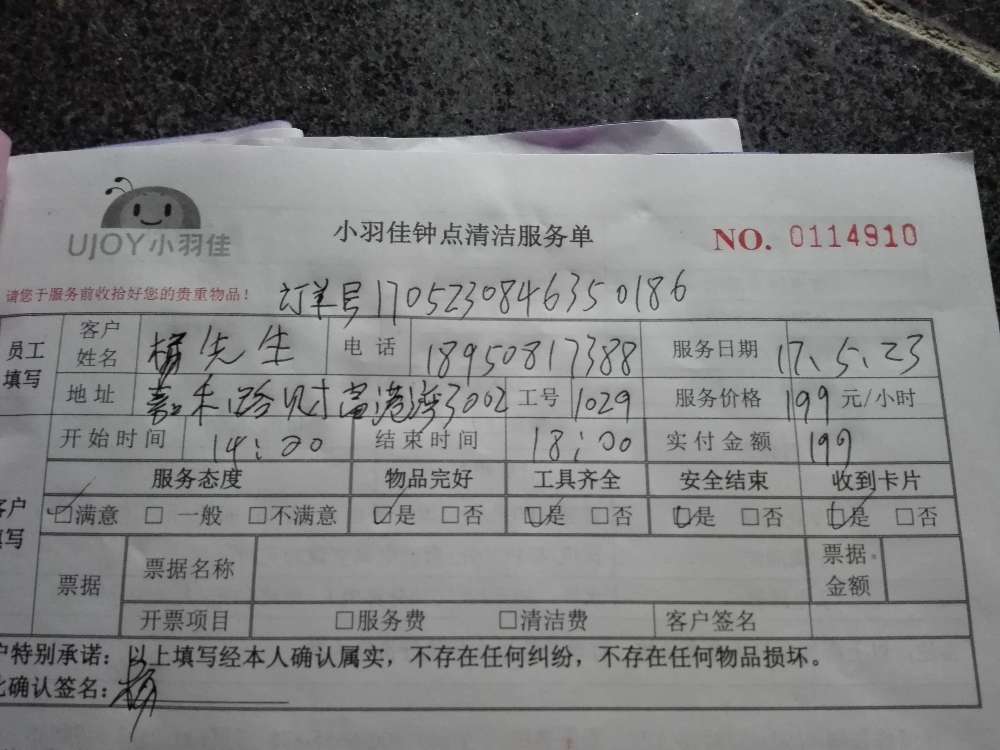 UJOY小羽佳
小羽佳钟点清洁服务单
NO. 0114910
请您于服务前收拾好您的贵重物品！
订单号1705230846350186
员工填写 客户姓名 杨先生 电话 18950817388 服务日期 17、5、23
地址 嘉禾路财富港湾3002 工号 1029 服务价格 199 元/小时
开始时间 14:00 结束时间 18:00 实付金额 199
客户填写 服务态度 物品完好 工具齐全 安全结束 收到卡片
☑满意 □一般 □不满意 ☑是 □否 ☑是 □否 ☑是 □否 ☑是 □否
票据 票据名称 票据金额
开票项目 □服务费 □清洁费 客户签名
户特别承诺：以上填写经本人确认属实，不存在任何纠纷，不存在任何物品损坏。
此确认签名：杨